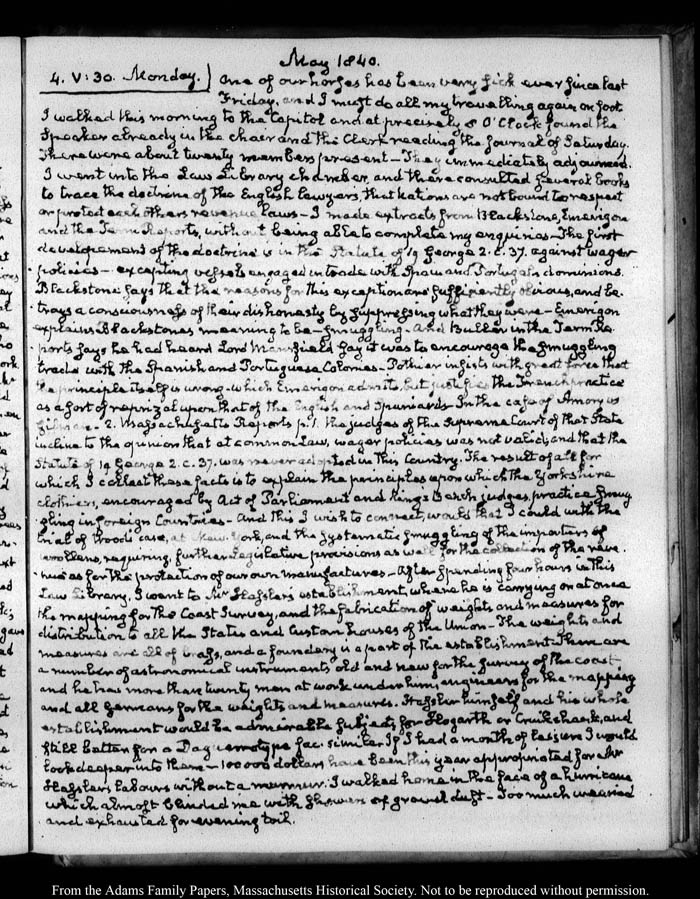 May 1840.
4. V: 30. Monday.
One of our horses has been very sick ever since last
Friday, and I must do all my travelling again on foot
I walked this morning to the Capitol and at precisely O'Clock found the
Speaker already in the chair and the Clerk reading the Journal of Saturday.
There were about twenty members present—They immediately adjourned.
I went into the Law Library chamber, and there consulted several books
to trace the doctrine of the English lawyers, that Nations are not bound to respect
or protect each others revenue laws—I made extracts from Blackstone, Emerigon
and the Term Reports, without being able to complete my enquiries—The first
developement of the doctrine is in the Statute of 19 George 2. c. 37. against wager
policies—excepting vessels engaged in trade with Spain and Portugals dominions.
Blackstone says that the reasons for this exception are sufficiently obvious, and be-
trays a consciousness of their dishonesty by suppressing what they were—Emerigon
explains Blackstones meaning to be—smuggling. And Buller in the Term Re-
ports says he had heard Lord Mansfield say it was to encourage the smuggling
trade with the Spanish and Portuguese Colonies—Pothier insists with great force that
the principle itself is wrong—which Emerigon admits, but justifies the French practice
as a sort of reprizal upon that of the English and Spaniards. In the case of Amory vs
Gilman—2. Massachusetts Reports p. 1. the judges of the Supreme Court of that State
incline to the opinion that at common Law, wager policies was not valid, and that the
Statute of 19 George 2. c. 37. was never adopted in this Country. The result of all for
which I collect these facts is to explain the principles upon which the Yorkshire
clothiers, encouraged by Act of Parliament and Kings Bench judges, practice smug-
gling in foreign Countries—And this I wish to connect, would that I could with the
trial of Woods case, at New-York, and the systematic smuggling of the importers of
woollens, requiring, further Legislative provisions as well for the collection of the reve-
nue as for the protection of our own manufactures.—After spending four hours in this
Law Library, I went to Mr Hassler's establishment, where he is carrying on at once
the mapping for the Coast Survey, and the fabrication of weights and measures for
distribution to all the States and Custom houses of the Union—The weights and
measures are all of brass, and a foundery is a part of the establishment. There are
a number of astronomical instruments old and new for the survey of the coast,
and he has more than twenty men at work under him, engineers for the mapping
and all Germans for the weights and measures. Hassler himself and his whole
establishment would be admirable subjects for Hogarth or Cruikshank, and
still better for a Daguerrotype fac-simile. If I had a month of leisure I would
look deeper into them—100000 dollars have been this year appropriated for Mr
Hassler's labours without a murmur. I walked home in the face of a hurricane
which almost blinded me with showers of gravel dust—Too much wearied
and exhausted for evening toil.
From the Adams Family Papers, Massachusetts Historical Society. Not to be reproduced without permission.